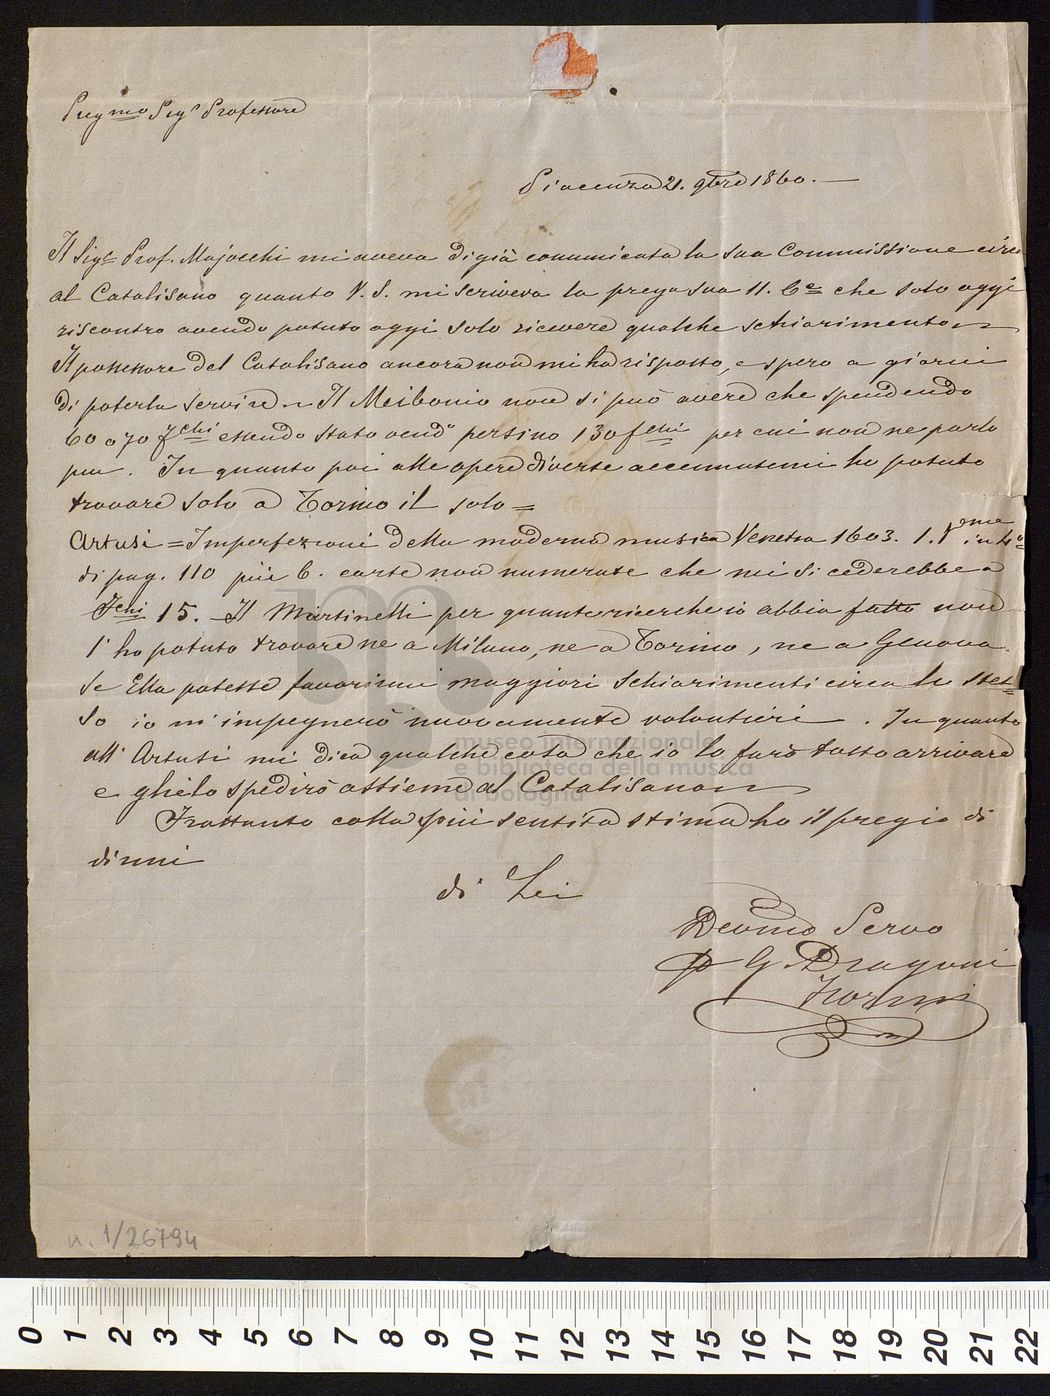 Preg.mo Sig.r Professore
Piacenza 21. 9bre 1860.
Il Sig.r Prof. Majocchi mi aveva digià comunicata la sua Commissione circa
al Catalisano quanto V. S. mi scriveva la prega sua 11. C.e che solo oggi
riscontro avendo potuto oggi solo ricevere qualche schiarimento
Il possessore del Catalisano ancora non mi ha risposto, e spero a giorni
di poterla servire. Il Meibonio non si può avere che spendendo
60 o 70 f.chi essendo stato vend.o persino 130 f.chi per cui non ne parlo
piu. In quanto poi alle opere diverse accennatemi ho potuto
trovare solo a Torino il solo =
Artusi = Imperfezioni della moderna musica Venezia 1603. 1. V.me in 4.o
di pag. 110 più 6. carte non numerate che mi si cederebbe a
F.chi 15. Il Martinelli per quante ricerche io abbia fatto non
l'ho potuto trovare ne a Milano, ne a Torino, ne a Genova.
Se Ella potesse favorirmi maggiori schiarimenti circa lo stes-
so io m'impegnerò nuovamente volontieri. In quanto
all'Artusi mi dica qualche cosa che io lo farò tosto arrivare
e glielo spedirò assieme al Catalisano
Frattanto colla più sentita stima ho il pregio di
dirmi
di Lei
Devmo Servo
G. Dragoni
museo internazionale
e biblioteca della musica
di bologna
n. 1/26794
0 1 2 3 4 5 6 7 8 9 10 11 12 13 14 15 16 17 18 19 20 21 22